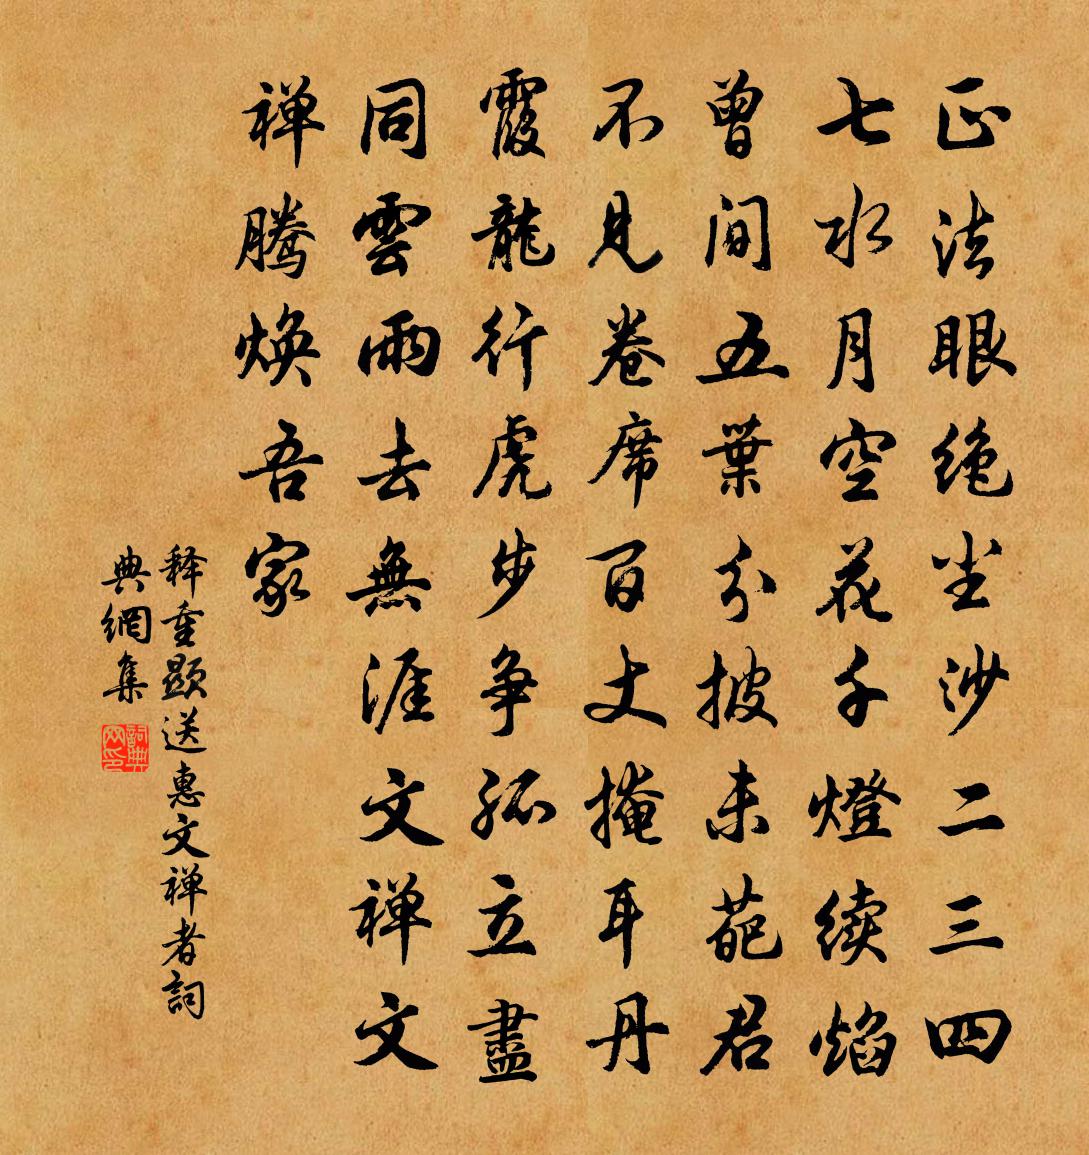 正法眼绝尘沙二三四
七水月空花千燈续焰
曾间五葉分披未葩君
不見卷席百丈掩耳丹
霞龍行虎步争孤立盡
同雲雨去無涯文禅文
禅腾焕吾家
释重顕送惠文禅者詞
典網集
詞典网印